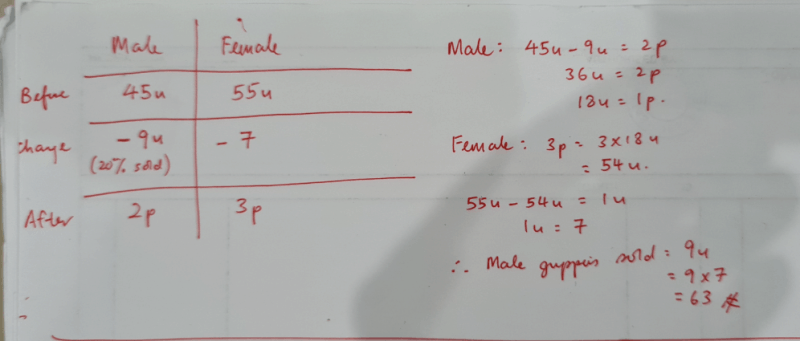 Male Female
Before 45u 55u
Change -9u - 7
(20% sold)
After 2p 3p
Male: 45u - 9u = 2p
36u = 2p
18u = 1p.
Female: 3p = 3x18u
= 54u.
55u - 54u = 1u
1u = 7
∴ Male guppies sold = 9u
= 9x7
= 63